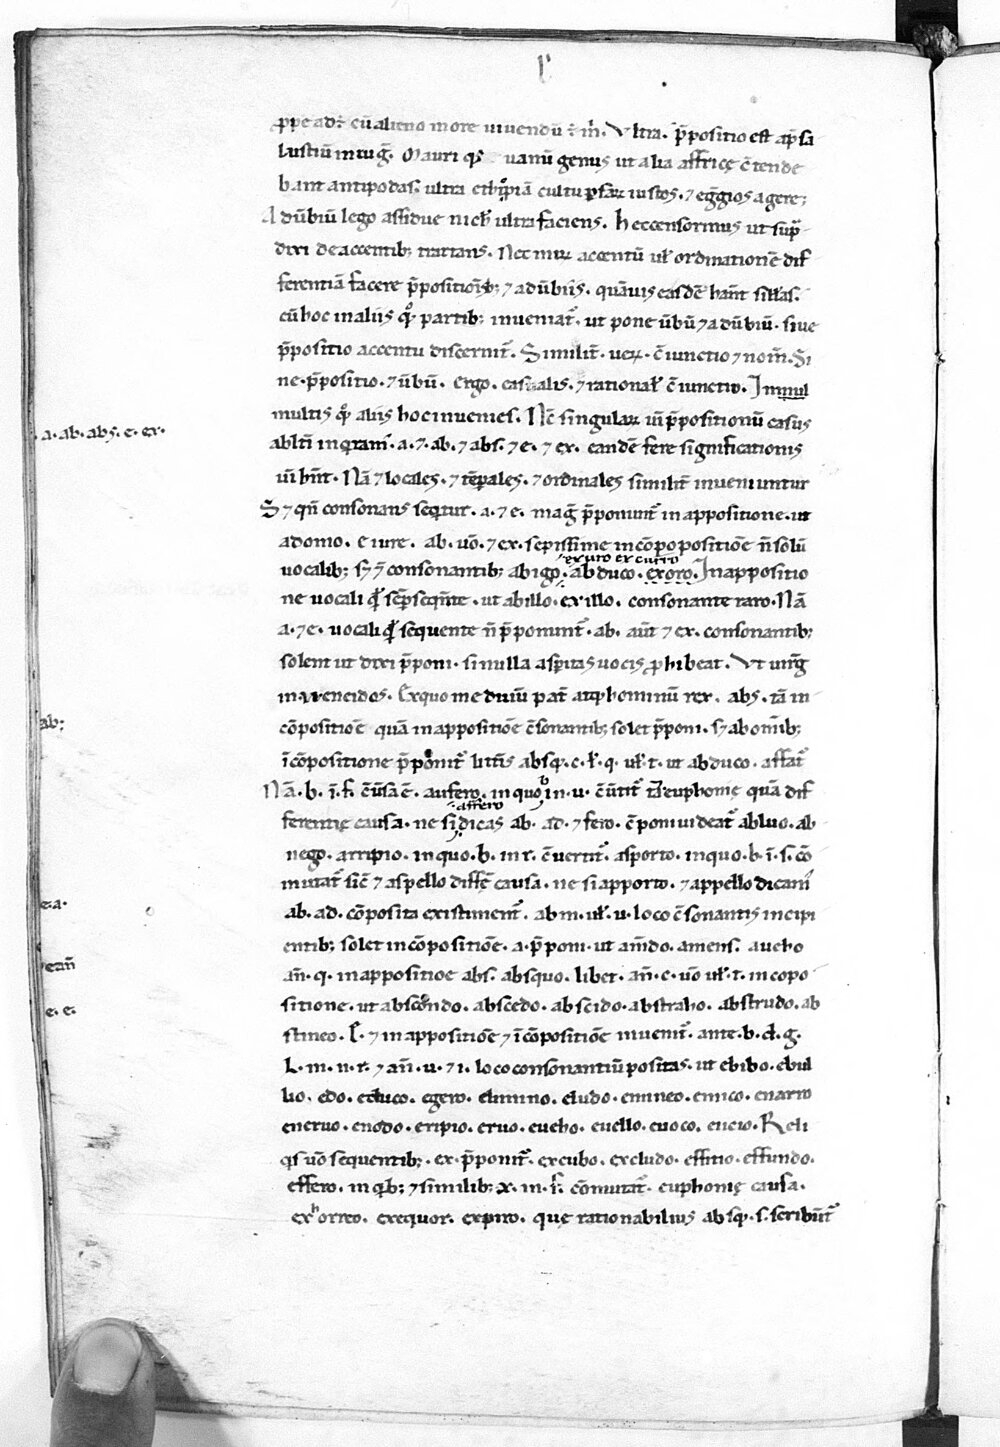 ꝓpe ad⁊ cū alieno more uiuendū ē m̄. Vltra. p̄positio est ap̄ sa
lustiū in iuḡ. Mauri uanū genus ut alia affricę ētende
bant antipodas. ultra ethiopiā cultu iustos. ⁊ egḡios agere;
Aduībiū lego assidue nich̄ ultra faciens. h̄ ec censorinus ut sup̄
dixi de accentib; tractans. Nec mirū accentū ul̄ ordinationē dif
ferentiā facere p̄positioīb; ⁊ aduībiis. quāuis easdē hānt sill̄as.
cū hoc in aliis qͦ partib; inueniat̄. ut pone ūbū ⁊ aduībiū. siue
p̄positio accentu discernit̄. Similit̄. uerū. c̄iunctio ⁊ nom̄. Si
ne. p̄positio. ⁊ ūbū. Ergo. casualis. ⁊ rational̄ c̄iunctio. In mul
multis qͦ aliis hoc inuenies. Nc̄ singulariū p̄positionū casus
ablt̄i inqram̄. a. ⁊. ab. ⁊ abs. ⁊ e. ⁊ ex. eandē fere significationis
uī hn̄t. Nā ⁊ locales. ⁊ tēporales. ⁊ ordinales similit̄ inueniuntur
S; ⁊ qn̄ consonans sequitur. a. ⁊ e. maḡ p̄ponunt̄ in appositione. ut
a domo. e iure. ab. uō. ⁊ ex. sepissime in cōpo positiōe n̄ solū
exuro excurro
uocalib; s; ⁊ consonantib; abigo. abduco. exoro. In appositio
ne uocali q̄ sēp seq̄nte. ut ab illo. ex illo. consonante raro. Nā
a. ⁊ e. uocali q̄ sequente n̄ p̄ponunt̄. ab. aūt ⁊ ex. consonantib;
solent ut dixi p̄poni. si nulla asp̄itas uocis ꝓhibeat. Vt uirḡ
in mencidos. Ex quo me diuū pat̄ atq̄ hominū rex. abs. tā in
cōpositiōe quā in appositiōe c̄sonantib; solet p̄poni. s; ab omīb;
ī cōpositione p̄ponit̄ litt̄is absq̄. c. ł. q. ul̄. t. ut abduco. affat̄
Nā. b. ī. f. c̄ūsa ē. aufero. in quo b in. u. c̄ūtit̄ tā euphonię quā dif
affero
ferentię causa. ne si dicas ab. ad. ⁊ fero. c̄poni uideat̄ abluo. ab
nego. arripio. in quo. b. in r. c̄uertit̄. asporto. in quo. b. ī. s. cō
mutat̄ sic̄ ⁊ aspello diffē causa. ne si apporto. ⁊ appello dicam̄
ab. ad. cōposita existiment̄. ab m. ul̄. u. loco c̄sonantis incipi
entib; solet in cōpositiōe. a. p̄poni. ut am̄do. amens. aueho
an̄. q. in appositioe abs. absquo. libet. an̄. c. uō ul̄. t. in copo
sitione. ut abscondo. abscedo. abscido. abstraho. abstrudo. ab
stineo. E. ⁊ in appositiōe ⁊ ī cōpositiōe inuenit̄. ante. b. d. g.
L. m. n. r. ⁊ an̄. u. ⁊ i. loco consonantiū positas. ut ebibo. ebul
lio. edo. educo. egero. elimino. eludo. emineo. emico. enarro
eneruo. enodo. eripio. eruo. eueho. euello. euoco. eueio. Reli
q̄s uō sequentib;. ex. p̄ponit̄. excubo. excludo. effitio. effundo.
effero. in q̄b; ⁊ similib; x. in. f. cōmutat̄. euphonię causa.
exhorreo. exequor. expiro. quę rationabilius absq̄. s. scribūt̄
a. ab. abs. e. ex.
ab;
e. a.
e. e.